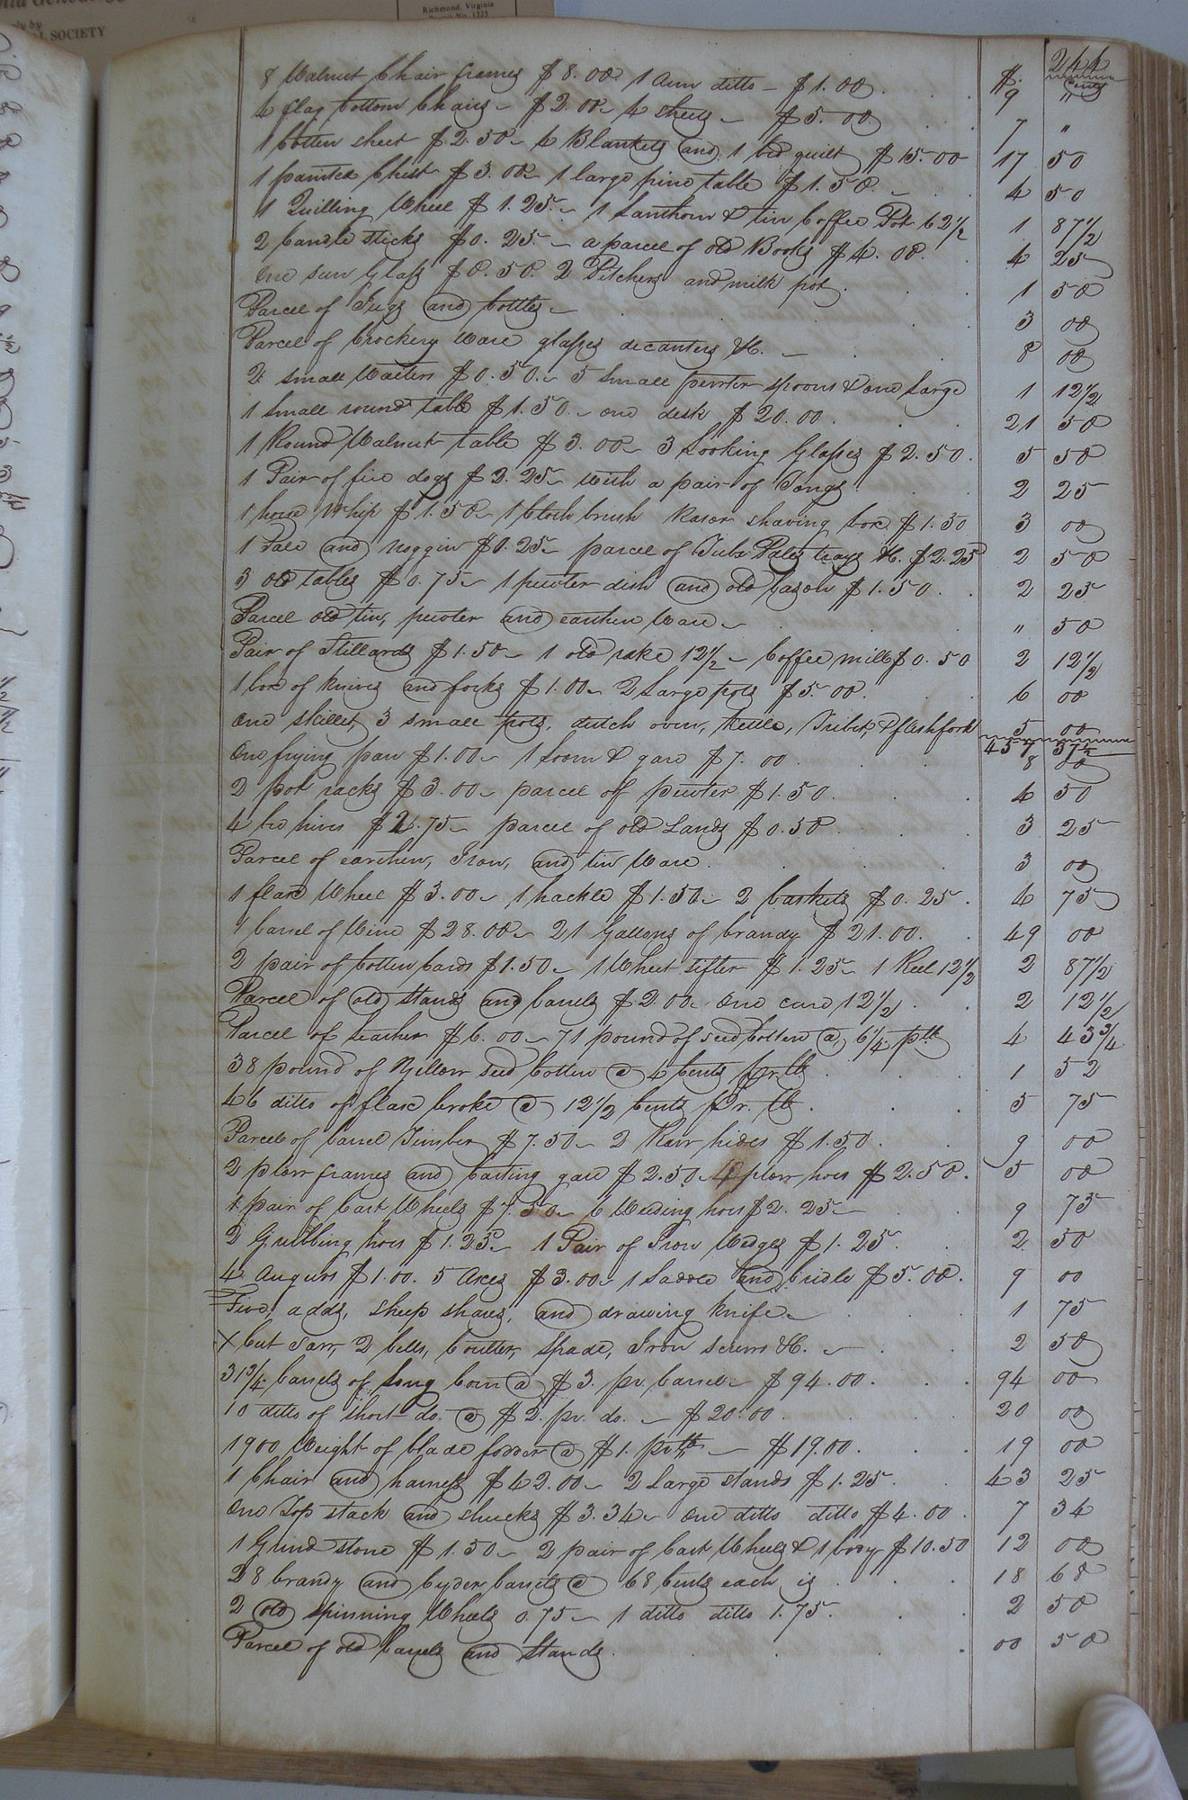 Richmond, Virginia
SOCIETY
244
$. Cents
8 Walnut Chair frames $8.00 1 Arm ditto - $1.00. 9 "
4 flag bottom Chairs - $2.00 - 4 sheets - $5.00 7 "
1 Cotten sheet $2.50 - 4 Blankets and 1 bed quilt $15.00 17 50
1 painted Chest $3.00 - 1 large pine table $1.50. - 4 50
1 Quilling Wheel $1.25. - 1 Lanthorn & tin Coffee Pot 62 1/2 1 87 1/2
2 Candle sticks $0.25. - a parcel of old Books $4.00. 4 25
One sun Glass $0.50. 2 Pitchers and milk pot. 1 50
Parcel of Jugs and bottles - 3 00
Parcel of Crockery Ware glasses decanters &C. - 8 00
2 small Waiters $0.50. - 5 small pewter spoons & one large 1 12 1/2
1 small round table $1.50. - one desk $20.00. 21 50
1 Round Walnut table $3.00 - 3 Looking Glasses $2.50. 5 50
1 Pair of fire dogs $2.25 - with a pair of Tongs. 2 25
1 horse Whip $1.50 - 1 Cloth brush Rasor shaving box $1.50 3 00
1 Pale and noggin $0.25 - parcel of Tubs Pales trays &C. $2.25 2 50
3 old tables $0.75 - 1 pewter dish and old bason $1.50. 2 25
Parcel old tin, pewter and earthen Ware - " 50
Pair of Stillards $1.50 - 1 old rake 12 1/2 - Coffee mill $0.50 2 12 1/2
1 box of knives and forks $1.00 - 2 Large pots $5.00. 6 00
One skillet, 3 small pots, dutch oven, kettle, Tribet, & fleshfork 5 00
457 37 1/2
One frying pan $1.00 - 1 Loom & gare $7.00. 8 00
2 pot racks $3.00 - parcel of pewter $1.50. 4 50
4 bee hives $2.75 - parcel of old Lands $0.50. 3 25
Parcel of earthen, Iron, and tin Ware. 3 00
1 flax Wheel $3.00 - 1 hackle $1.50 - 2 baskets $0.25. 4 75
1 barrel of Wine $28.00 - 21 Gallons of brandy $21.00. 49 00
2 pair of Cotten Cards $1.50 - 1 Wheat sifter $1.25 - 1 Reel 12 1/2 2 87 1/2
Parcel of old stands and barrels $2.00 - One cund 12 1/2. 2 12 1/2
Parcel of leather $6.00 - 71 pound of seed Cotten @ 6 1/4 pr lb 4 43 3/4
38 pound of Yellow seed Cotten @ 4 Cents pr lb 1 52
46 ditto of flax broke @ 12 1/2 Cents Pr. lb. 5 75
Parcel of barrel Timber $7.50 - 2 Raw hides $1.50. 9 00
2 plow frames and Carting gare $2.50 4 plow hoes $2.50. 5 00
1 pair of Cart Wheels $7.50 - 6 Weeding hoes $2.25 - 9 75
2 Grubbing hoes $1.25 - 1 Pair of Iron Wedges $1.25. 2 50
4 Augurs $1.00. 5 Axes $3.00 - 1 Saddle and bridle $5.00. 9 00
Two adds, sheep shears, and drawing knife - 1 75
X Cut Saw, 2 bells, Coulter, Spade, Iron screws &C. - 2 50
31 3/4 barrels of long Corn @ $3. pr. barrel - $94.00. 94 00
10 ditto of short do. @ $2. pr. do. - $20.00. 20 00
1900 Weight of blade fodder @ $1. pr lb - $19.00. 19 00
1 Chair and harness $42.00 - 2 Large stands $1.25. 43 25
One Top stack and shucks $3.34 - One ditto ditto $4.00. 7 34
1 Grind stone $1.50 - 2 pair of Cart Wheels & 1 body $10.50 12 00
28 brandy and Cyder barrels @ 68 Cents each is 18 68
2 old spinning Wheels 0.75 - 1 ditto ditto 1.75. 2 50
Parcel of old barrels and Stands. 00 50